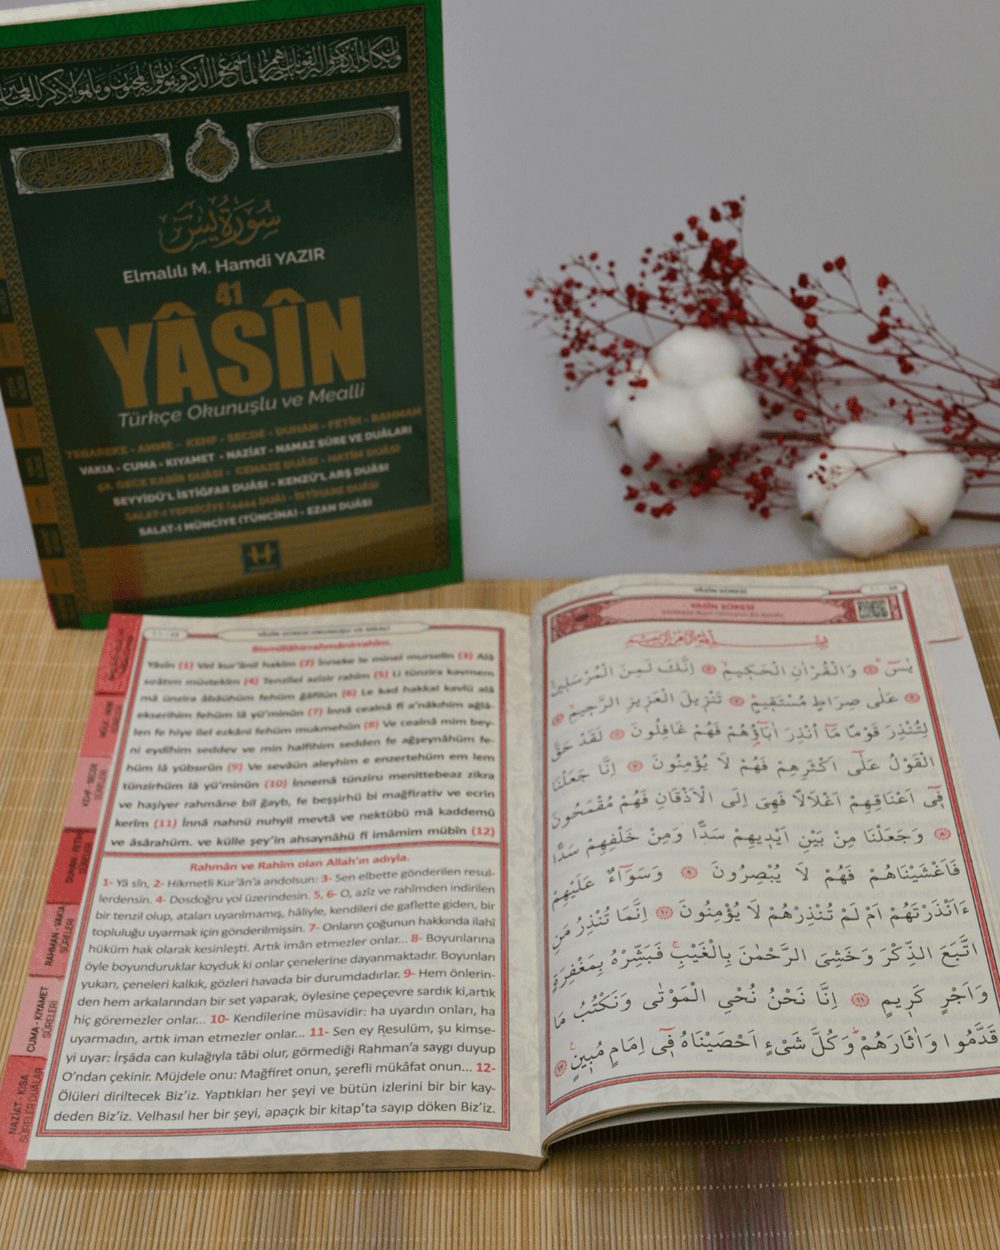 سورة يس
Elmalılı M. Hamdi YAZIR
41
YÂSÎN
Türkçe Okunuşlu ve Mealli
TEBAREKE - AMME - KEHF - SECDE - DUHAN - FETİH - RAHMAN
VAKIA - CUMA - KIYAMET - NAZİAT - NAMAZ SÛRE VE DUÂLARI
CENAZE DUÂSI - HATİM DUÂSI
SEYYİDÜ'L İSTİĞFAR DUÂSI - KENZÜ'L ARŞ DUÂSI
SALAT-I TEFRİCİYE (4444 DUÂ) - İSTİHARE DUÂSI
SALAT-I MÜNCİYE (TÜNCİNA) - EZAN DUÂSI
YÂSÎN SÛRESİ OKUNUŞU VE MEALİ
Bismillâhirrahmânirrahîm.
Yâsîn (1) Vel kur'ânil hakîm (2) İnneke le minel murselîn (3) Alâ
sırâtım müstekîm (4) Tenzîlel azîzir rahîm (5) Li tünzira kavmem
mâ ünzira âbâühüm fehüm ğâfilûn (6) Le kad hakkal kavlü alâ
ekserihim fehüm lâ yü'minûn (7) İnnâ cealnâ fî a'nâkıhim ağlâ-
len fe hiye ilel ezkâni fehüm mukmehûn (8) Ve cealnâ mim bey-
ni eydîhim seddev ve min halfihim sedden fe ağşeynâhüm fe-
hüm lâ yübsırûn (9) Ve sevâün aleyhim e enzertehüm em lem
tünzirhüm lâ yü'minûn (10) İnnemâ tünziru menittebeaz zikra
ve haşiyer rahmâne bil ğayb, fe beşşirhü bi mağfirativ ve ecrin
kerîm (11) İnnâ nahnü nuhyil mevtâ ve nektübü mâ kaddemû
ve âsârahüm. ve külle şey'in ahsaynâhü fî imâmim mübîn (12)
Rahmân ve Rahîm olan Allah'ın adıyla.
1- Yâ sîn, 2- Hikmetli Kur'ân'a andolsun: 3- Sen elbette gönderilen resul-
lerdensin. 4- Dosdoğru yol üzerindesin. 5, 6- O, azîz ve rahîmden indirilen
bir tenzil olup, ataları uyarılmamış, hâliyle, kendileri de gaflette giden, bir
topluluğu uyarmak için gönderilmişsin. 7- Onların çoğunun hakkında ilahî
hüküm hak olarak kesinleşti. Artık iman etmezler onlar... 8- Boyunlarına
öyle boyunduruklar koyduk ki onlar çenelerine dayanmaktadır. Boyunları
yukarı, çeneleri kalkık, gözleri havada bir durumdadırlar. 9- Hem önlerin-
den hem arkalarından bir set yaparak, öylesine çepeçevre sardık ki,artık
hiç göremezler onlar... 10- Kendilerine müsavidir: ha uyardın onları, ha
uyarmadın, artık iman etmezler onlar... 11- Sen ey Resulüm, şu kimse-
yi uyar: İrşâda can kulağıyla tâbi olur, görmediği Rahman'a saygı duyup
O'ndan çekinir. Müjdele onu: Mağfiret onun, şerefli mükâfat onun... 12-
Ölüleri diriltecek Biz'iz. Yaptıkları her şeyi ve bütün izlerini bir bir kay-
deden Biz'iz. Velhasıl her bir şeyi, apaçık bir kitap'ta sayıp döken Biz'iz.
KEHF - SECDE
SÛRELERİ
DUHAN - FETİH
SÛRELERİ
RAHMAN - VAKIA
SÛRELERİ
CUMA - KIYAMET
SÛRELERİ
NAZİAT - KISA
SÛRELER DUÂLAR
YÂSÎN SÛRESİ
YASİN SÛRESİ
يٰسٓ ۞ وَالْقُرْاٰنِ الْحَكٖيمِ ۞ اِنَّكَ لَمِنَ الْمُرْسَلٖينَ
۞ عَلٰى صِرَاطٍ مُسْتَقٖيمٍ ۞ تَنْزٖيلَ الْعَزٖيزِ الرَّحٖيمِ ۞
لِتُنْذِرَ قَوْمًا مَٓا اُنْذِرَ اٰبَٓاؤُ۬هُمْ فَهُمْ غَافِلُونَ ۞ لَقَدْ حَقَّ
الْقَوْلُ عَلٰٓى اَكْثَرِهِمْ فَهُمْ لَا يُؤْمِنُونَ ۞ اِنَّا جَعَلْنَا
فٖٓى اَعْنَاقِهِمْ اَغْلَالًا فَهِىَ اِلَى الْاَذْقَانِ فَهُمْ مُقْمَحُونَ
۞ وَجَعَلْنَا مِنْ بَيْنِ اَيْدٖيهِمْ سَدًّا وَمِنْ خَلْفِهِمْ سَدًّا
فَاَغْشَيْنَاهُمْ فَهُمْ لَا يُبْصِرُونَ ۞ وَسَوَٓاءٌ عَلَيْهِمْ
ءَاَنْذَرْتَهُمْ اَمْ لَمْ تُنْذِرْهُمْ لَا يُؤْمِنُونَ ۞ اِنَّمَا تُنْذِرُ مَنِ
اتَّبَعَ الذِّكْرَ وَخَشِىَ الرَّحْمٰنَ بِالْغَيْبِ فَبَشِّرْهُ بِمَغْفِرَةٍ
وَاَجْرٍ كَرٖيمٍ ۞ اِنَّا نَحْنُ نُحْيِ الْمَوْتٰى وَنَكْتُبُ مَا
قَدَّمُوا وَاٰثَارَهُمْ وَكُلَّ شَىْءٍ اَحْصَيْنَاهُ فٖٓى اِمَامٍ مُبٖينٍ ۞